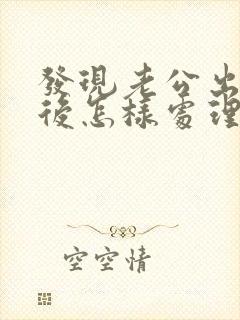 發現老公出
後怎樣處理
空空情